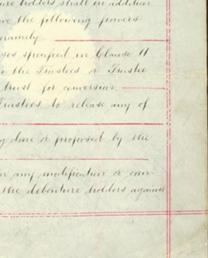 holders shall in addition
the following powers
namely
specified in Clause 11
the Trustees or Trustee
trust for conversion
Trustees to release any of
have or proposed by the
any modification or
the debenture holders against